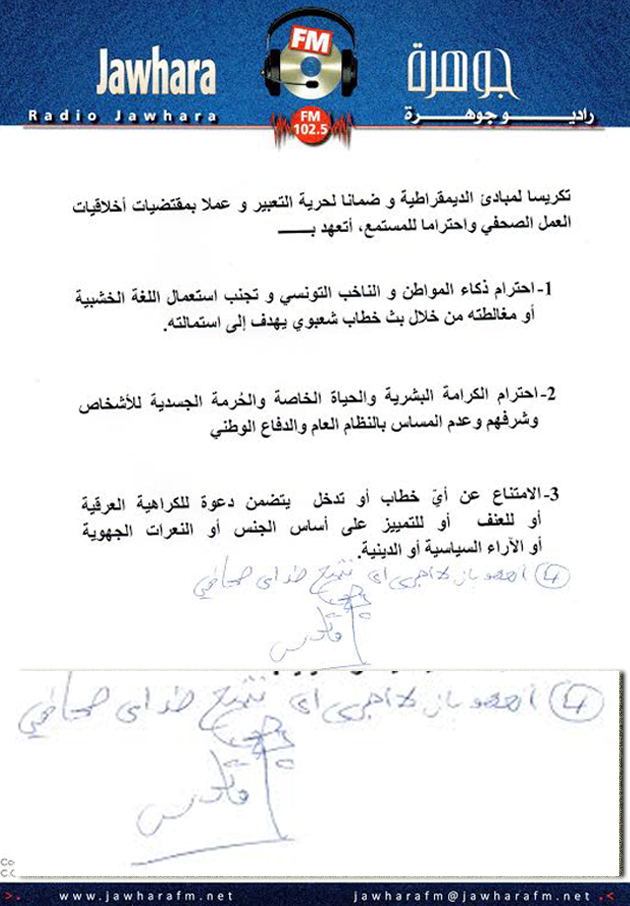 Jawhara
FM
جوهرة
Radio Jawhara
FM
102.5
راديو جوهرة
تكريسا لمبادئ الديمقراطية و ضمانا لحرية التعبير و عملا بمقتضيات أخلاقيات
العمل الصحفي واحتراما للمستمع، أتعهد بـــــ
1- احترام ذكاء المواطن و الناخب التونسي و تجنب استعمال اللغة الخشبية
أو مغالطته من خلال بث خطاب شعبوي يهدف إلى استمالته.
2- احترام الكرامة البشرية والحياة الخاصة والحُرمة الجسدية للأشخاص
وشرفهم وعدم المساس بالنظام العام والدفاع الوطني
3- الامتناع عن أيّ خطاب أو تدخل يتضمن دعوة للكراهية العرقية
أو للعنف أو للتمييز على أساس الجنس أو النعرات الجهوية
أو الآراء السياسية أو الدينية.
4 أتعهد بان لا أجري اي تتبع ضد اي صحافي
4 أتعهد بان لا أجري اي تتبع ضد اي صحافي
Co
C.C
www.jawharafm.net
jawharafm@jawharafm.net